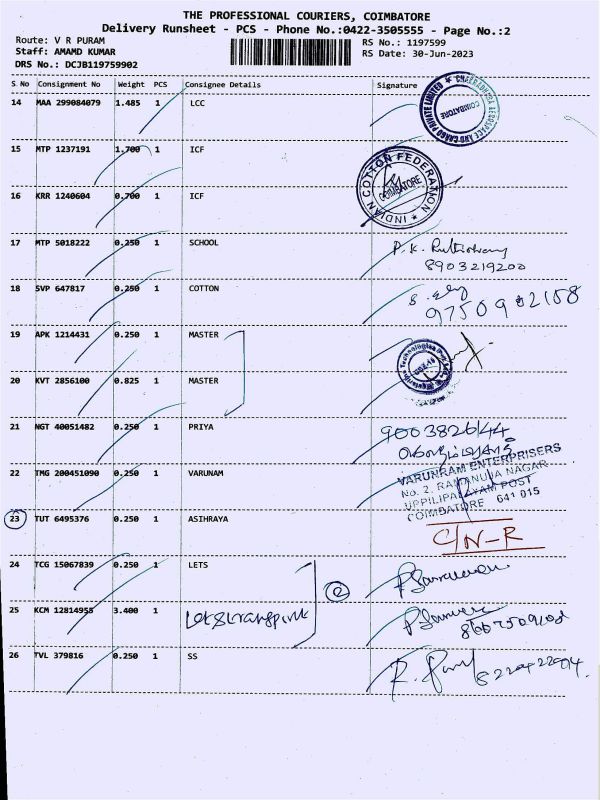 THE PROFESSIONAL COURIERS, COIMBATORE
Delivery Runsheet - PCS - Phone No.:0422-3505555 - Page No.:2
Route: V R PURAM
Staff: AMAMD KUMAR
DRS No.: DCJB119759902
RS No.: 1197599
RS Date: 30-Jun-2023
S. No Consignment No Weight PCS Consignee Details Signature
14 MAA 299084079 1.485 1 LCC
COIMBATORE
15 MTP 1237191 1.700 1 ICF
INDIAN COTTON FEDERATION
COIMBATORE
16 KRR 1240604 0.700 1 ICF
17 MTP 5018222 0.250 1 SCHOOL
P. K.
8903219200
18 SVP 647817 0.250 1 COTTON
19 APK 1214431 0.250 1 MASTER
20 KVT 2856100 0.825 1 MASTER
21 NGT 40051482 0.250 1 PRIYA
9003826144
22 TMG 200451090 0.250 1 VARUNAM
VARUNRAM ENTERPRISERS
No. 2, RAMANUJA NAGAR
UPPILIPALAYAM POST
COIMBATORE 641 015
23 TUT 6495376 0.250 1 ASIHRAYA
C/N-R
24 TCG 15067839 0.250 1 LETS
2
25 KCM 12814955 3.400 1
26 TVL 379816 0.250 1 SS